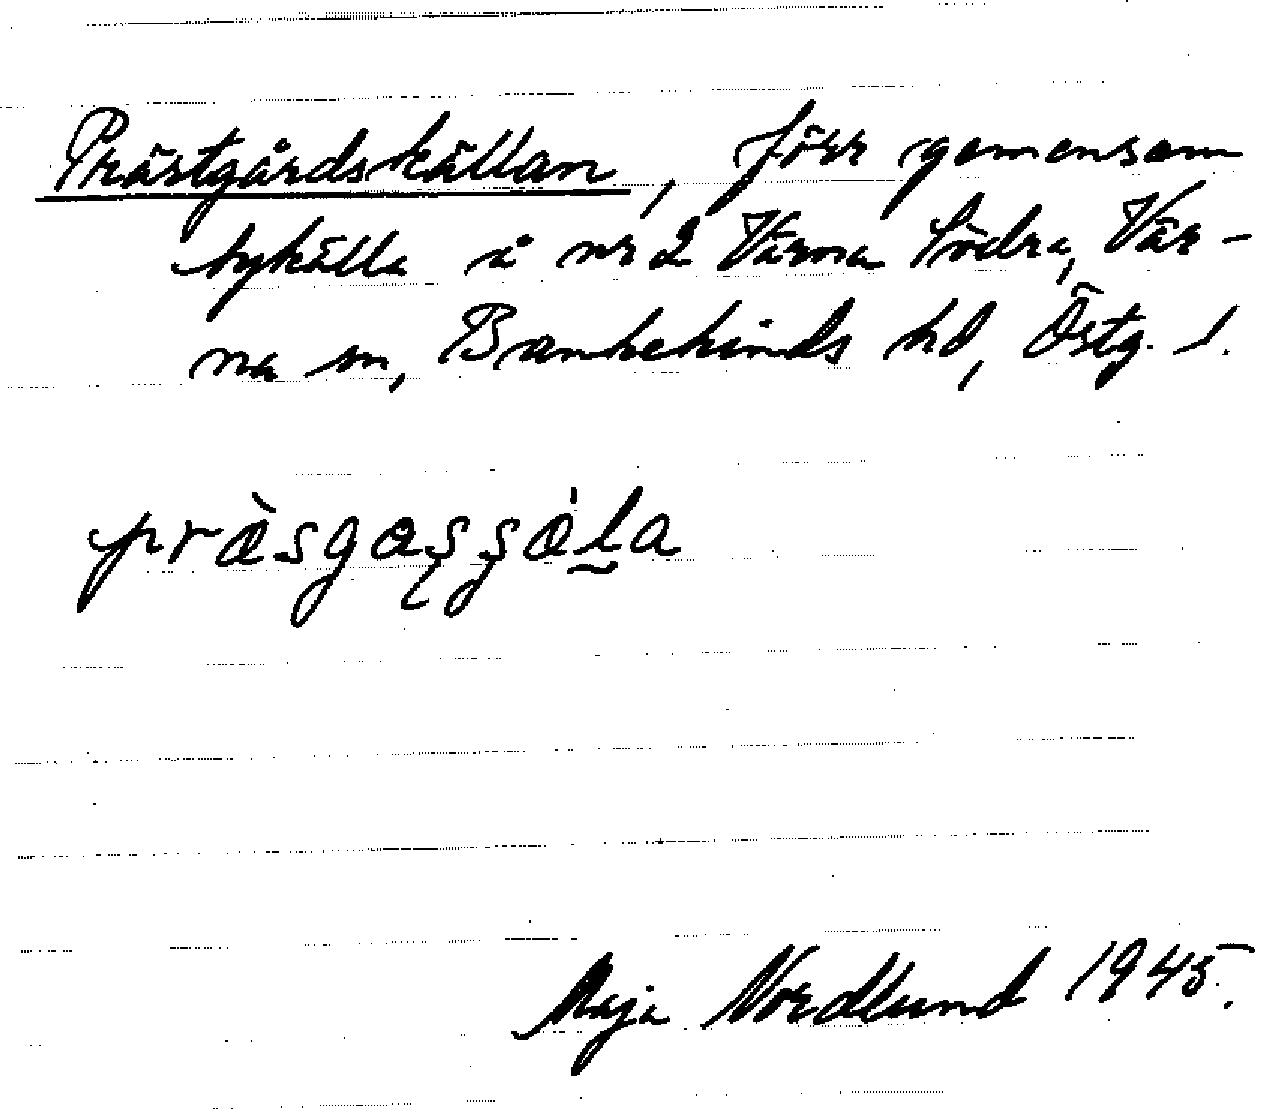 Prästgårdskällan, förr gemensam
bykälla å nr 2 Värna Södra, Vär-
na sn, Bankekinds hd, Östg. l.
Maja Nordlund 1945.